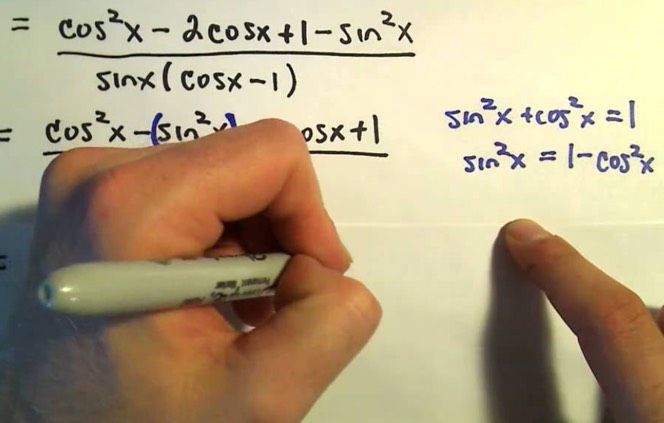 = cos²x - 2cosx + 1 - sin²x
sinx(cosx - 1)
= cos²x - (sin²x) osx + 1
sin²x + cos²x = 1
sin²x = 1 - cos²x
=